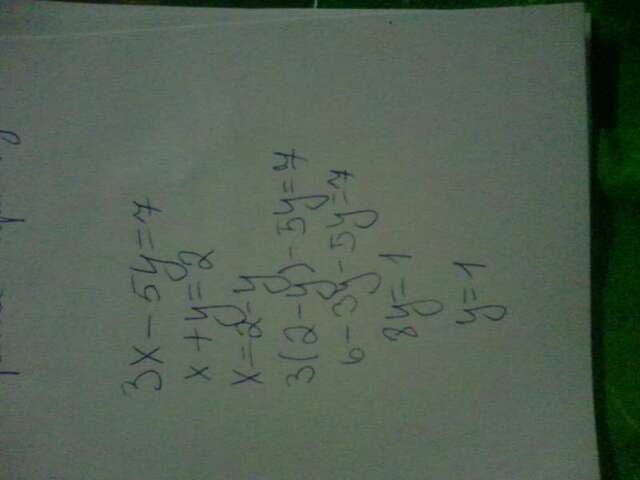 3x - 5y = 7
x + y = 2
x = 2 - y
3(2 - y) - 5y = 7
6 - 3y - 5y = 7
8y = 1
y = 1